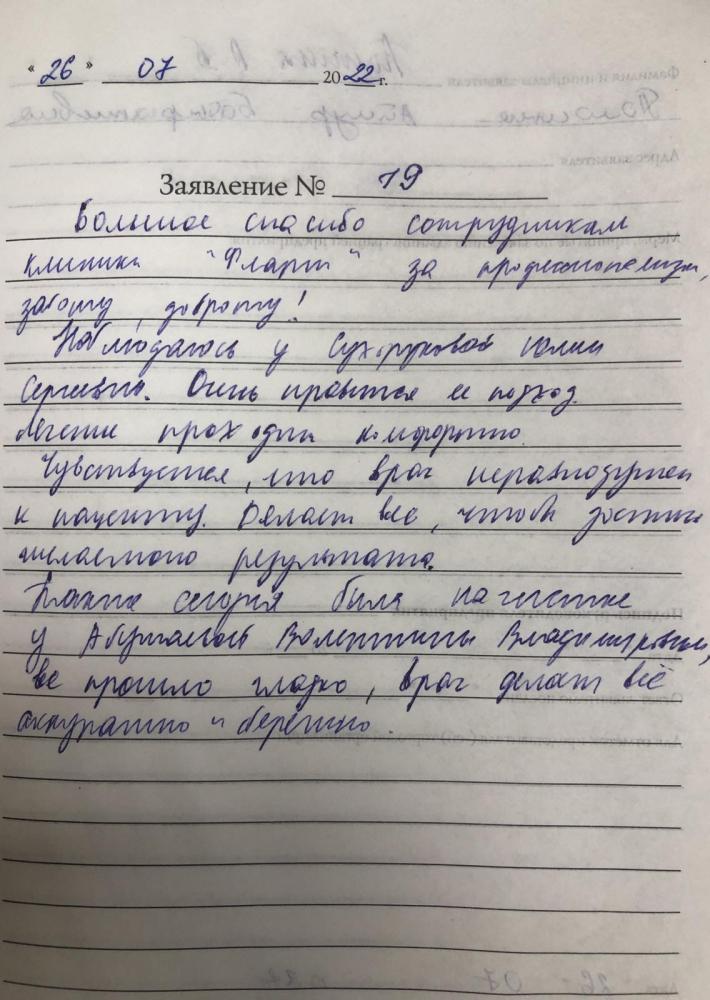 "26" 07 2022 г.
Заявление № 19
Большое спасибо сотрудникам
клиники "Фларт" за профессионализм,
заботу, доброту!
Наблюдаюсь у Сухоруковой Юлии
Сергеевны. Очень нравится ее подход.
Лечение проходит комфортно.
Чувствуется, что врач неравнодушен
к пациенту. Делает все, чтобы достичь
желаемого результата.
Также сегодня была на чистке
у Валентины Владимировны,
все прошло гладко, врач делает всё
аккуратно и бережно.